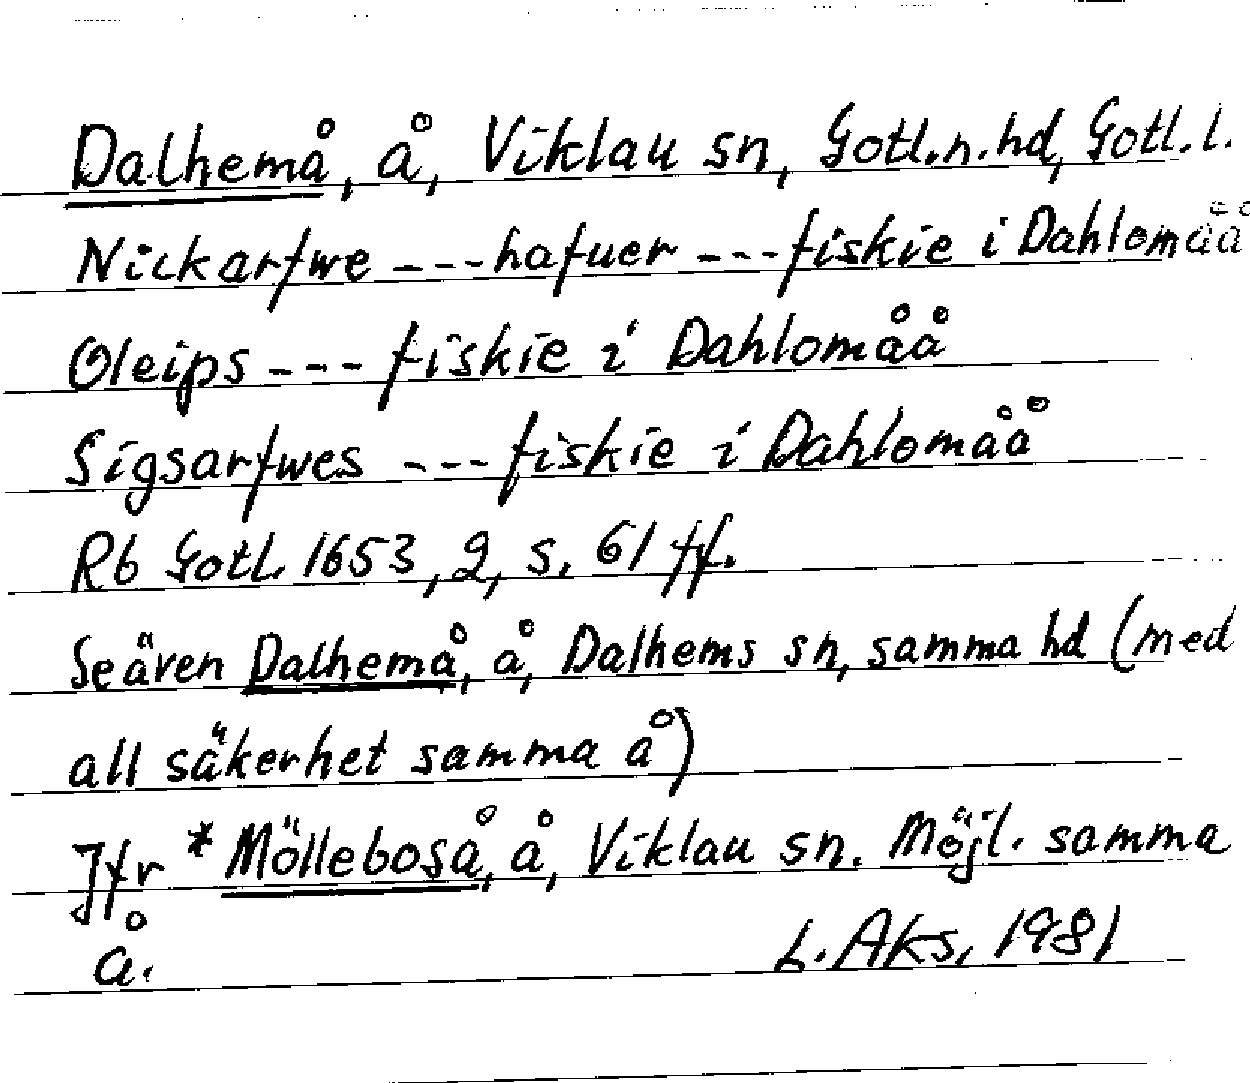 Dalhemå, å, Viklau sn, Gotl.n.hd, Gotl.l.
Nickarfwe ---hafuer ---fiskie i Dahlomåå
Oleips --- fiskie i Dahlomåå
Sigsarfwes ---fiskie i Dahlomåå
Rb Gotl. 1653, 2, s. 61 ff.
Se även Dalhemå, å, Dalhems sn, samma hd (med
all säkerhet samma å)
Jfr *Mölleboså, å, Viklau sn. Möjl. samma
å.
L. Aks, 1981